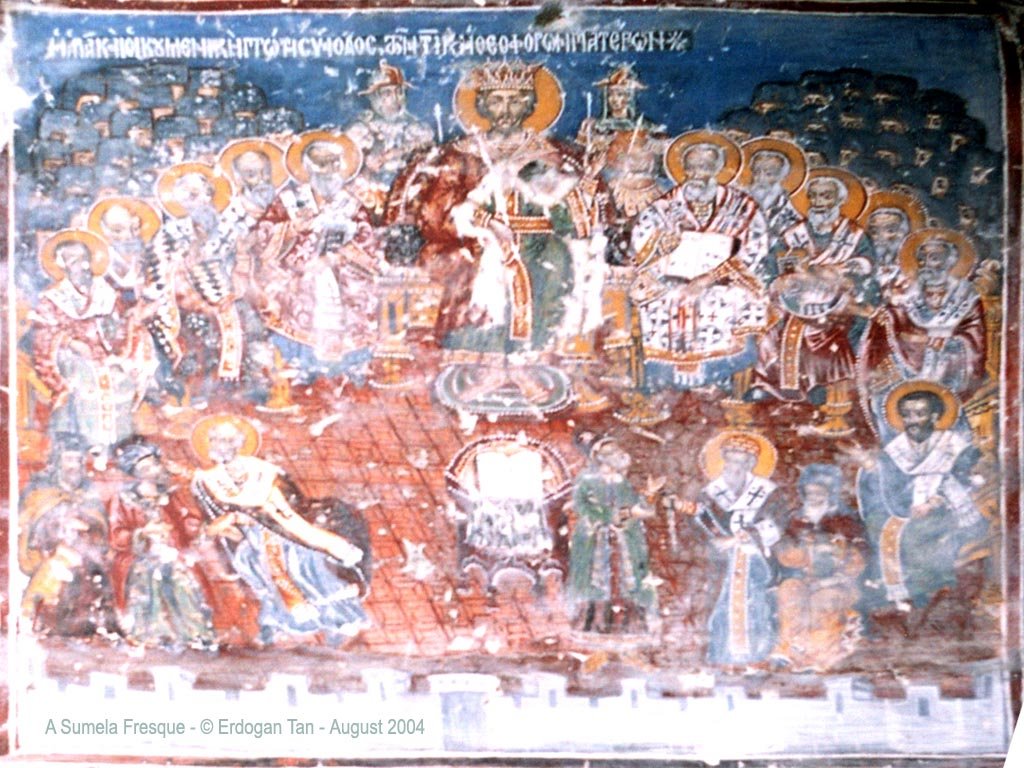 Η ΟΙΚΟΥΜΕΝΙΚΗ ΠΡΩΤΗ CΥΝΟΔΟC, ΘΕΟΦΟΡΩΝ ΠΑΤΕΡΩΝ
A Sumela Fresque - © Erdogan Tan - August 2004